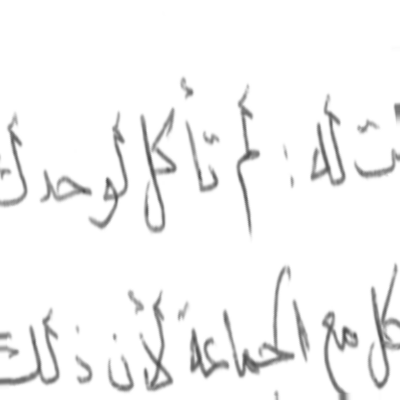 ت له: لم تأكل لوحدك
كل مع الجماعة لأن ذلك